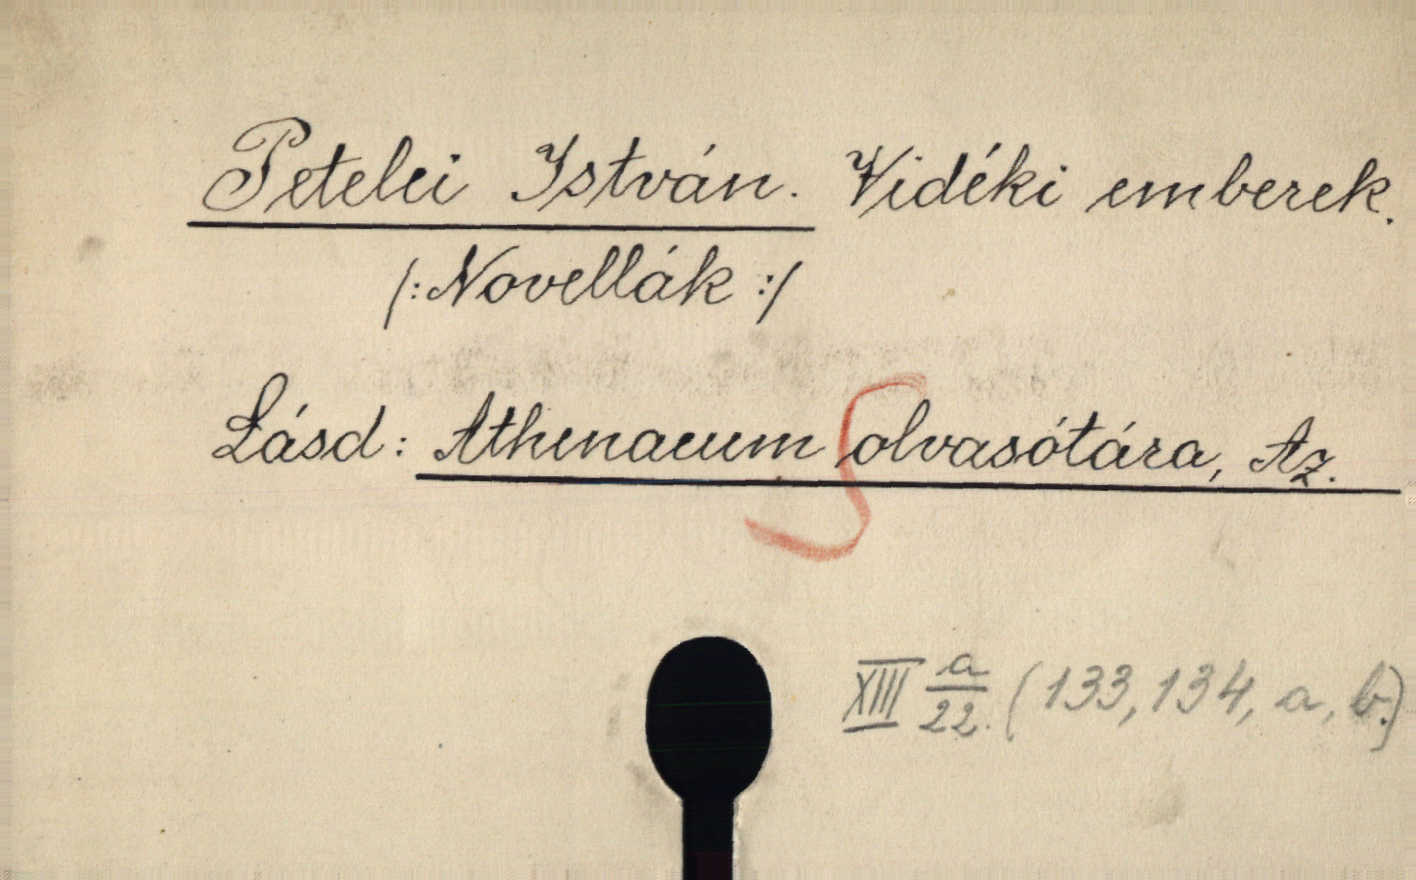 Petelei István. Vidéki emberek.
/: Novellák :/
Lásd: Athenaeum olvasótára, Az.
XIII a/22. (133, 134, a, b.)